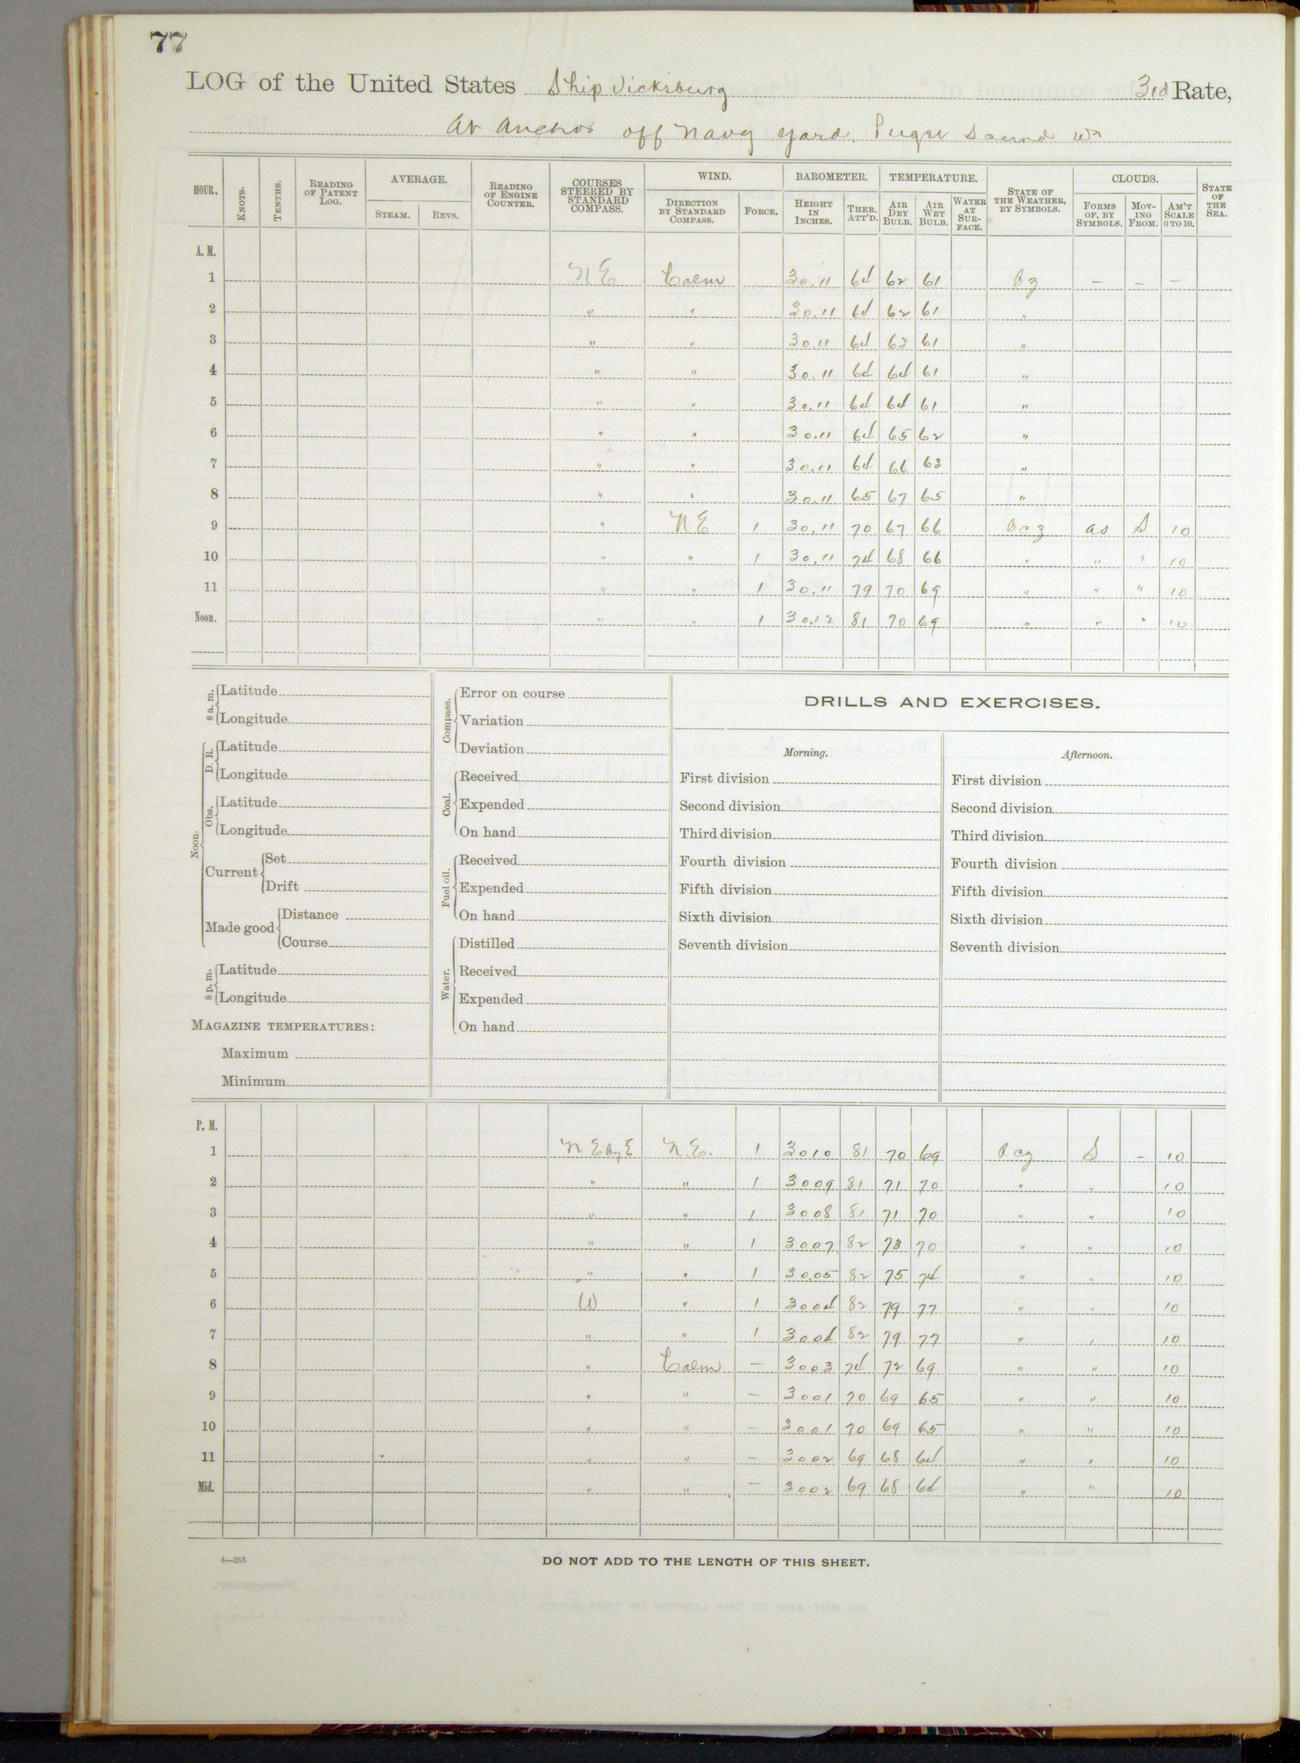 77
LOG of the United States Ship Vicksburg 3rd Rate,
At Anchor off Navy Yard. Puget Sound Wn
HOUR. KNOTS. TENTHS. READING OF PATENT LOG. AVERAGE. STEAM. REVS. READING OF ENGINE COUNTER. COURSES STEERED BY STANDARD COMPASS. WIND. DIRECTION BY STANDARD COMPASS. FORCE. BAROMETER. HEIGHT IN INCHES. THER. ATT'D. TEMPERATURE. AIR DRY BULB. AIR WET BULB. WATER AT SURFACE. STATE OF THE WEATHER, BY SYMBOLS. CLOUDS. FORMS OF, BY SYMBOLS. MOVING FROM. AM'T SCALE 0 TO 10. STATE OF THE SEA.
A. M.
1 NE Calm 30.11 64 62 61 bz – – –
2 " " 30.11 64 62 61 "
3 " " 30.11 64 63 61 "
4 " " 30.11 64 64 61 "
5 " " 30.11 64 64 61 "
6 " " 30.11 64 65 62 "
7 " " 30.11 64 66 63 "
8 " " 30.11 65 67 65 "
9 " NE 1 30.11 70 67 66 bcz as S 10
10 " " 1 30.11 74 68 66 " " " 10
11 " " 1 30.11 79 70 69 " " " 10
Noon. " " 1 30.12 81 70 69 " " " 10
8 a. m. Latitude
Longitude
Noon. D. R. Latitude
Longitude
Obs. Latitude
Longitude
Current Set
Drift
Made good Distance
Course
8 p. m. Latitude
Longitude
MAGAZINE TEMPERATURES:
Maximum
Minimum
Compass. Error on course
Variation
Deviation
Coal. Received
Expended
On hand
Fuel oil. Received
Expended
On hand
Water. Distilled
Received
Expended
On hand
DRILLS AND EXERCISES.
Morning.
First division
Second division
Third division
Fourth division
Fifth division
Sixth division
Seventh division
Afternoon.
First division
Second division
Third division
Fourth division
Fifth division
Sixth division
Seventh division
P. M.
1 NE by E N.E. 1 3010 81 70 69 bcz S – 10
2 " " 1 3009 81 71 70 " " 10
3 " " 1 3008 81 71 70 " " 10
4 " " 1 3007 82 73 70 " " 10
5 " " 1 30.05 82 75 74 " " 10
6 W " 1 3004 82 79 77 " " 10
7 " " 1 3004 82 79 77 " " 10
8 " Calm – 3003 74 72 69 " " 10
9 " " – 3001 70 69 65 " " 10
10 " " – 3001 70 69 65 " " 10
11 " " – 3002 69 68 64 " " 10
Mid. " " – 3002 69 68 64 " " 10
4—265
DO NOT ADD TO THE LENGTH OF THIS SHEET.